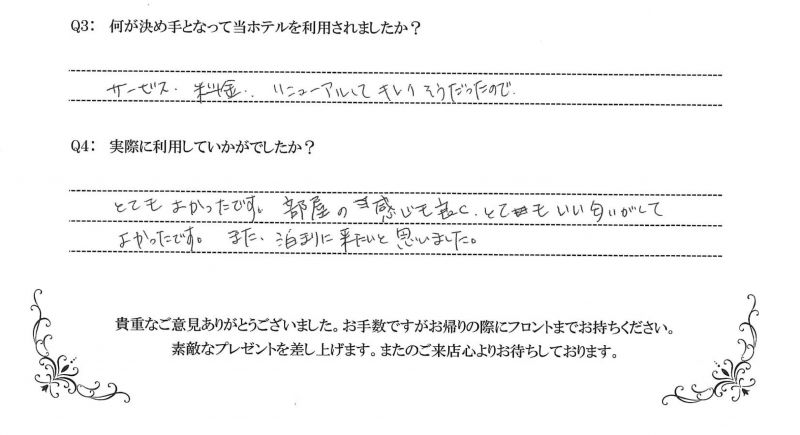 Q3： 何が決め手となって当ホテルを利用されましたか？
サービス、料金、リニューアルして キレイそうだったので。
Q4： 実際に利用していかがでしたか？
とても よかったです。部屋の感じも良く、とてもいい匂いがして
よかったです。また、泊まりに来たいと思いました。
貴重なご意見ありがとうございました。お手数ですがお帰りの際にフロントまでお持ちください。
素敵なプレゼントを差し上げます。またのご来店心よりお待ちしております。